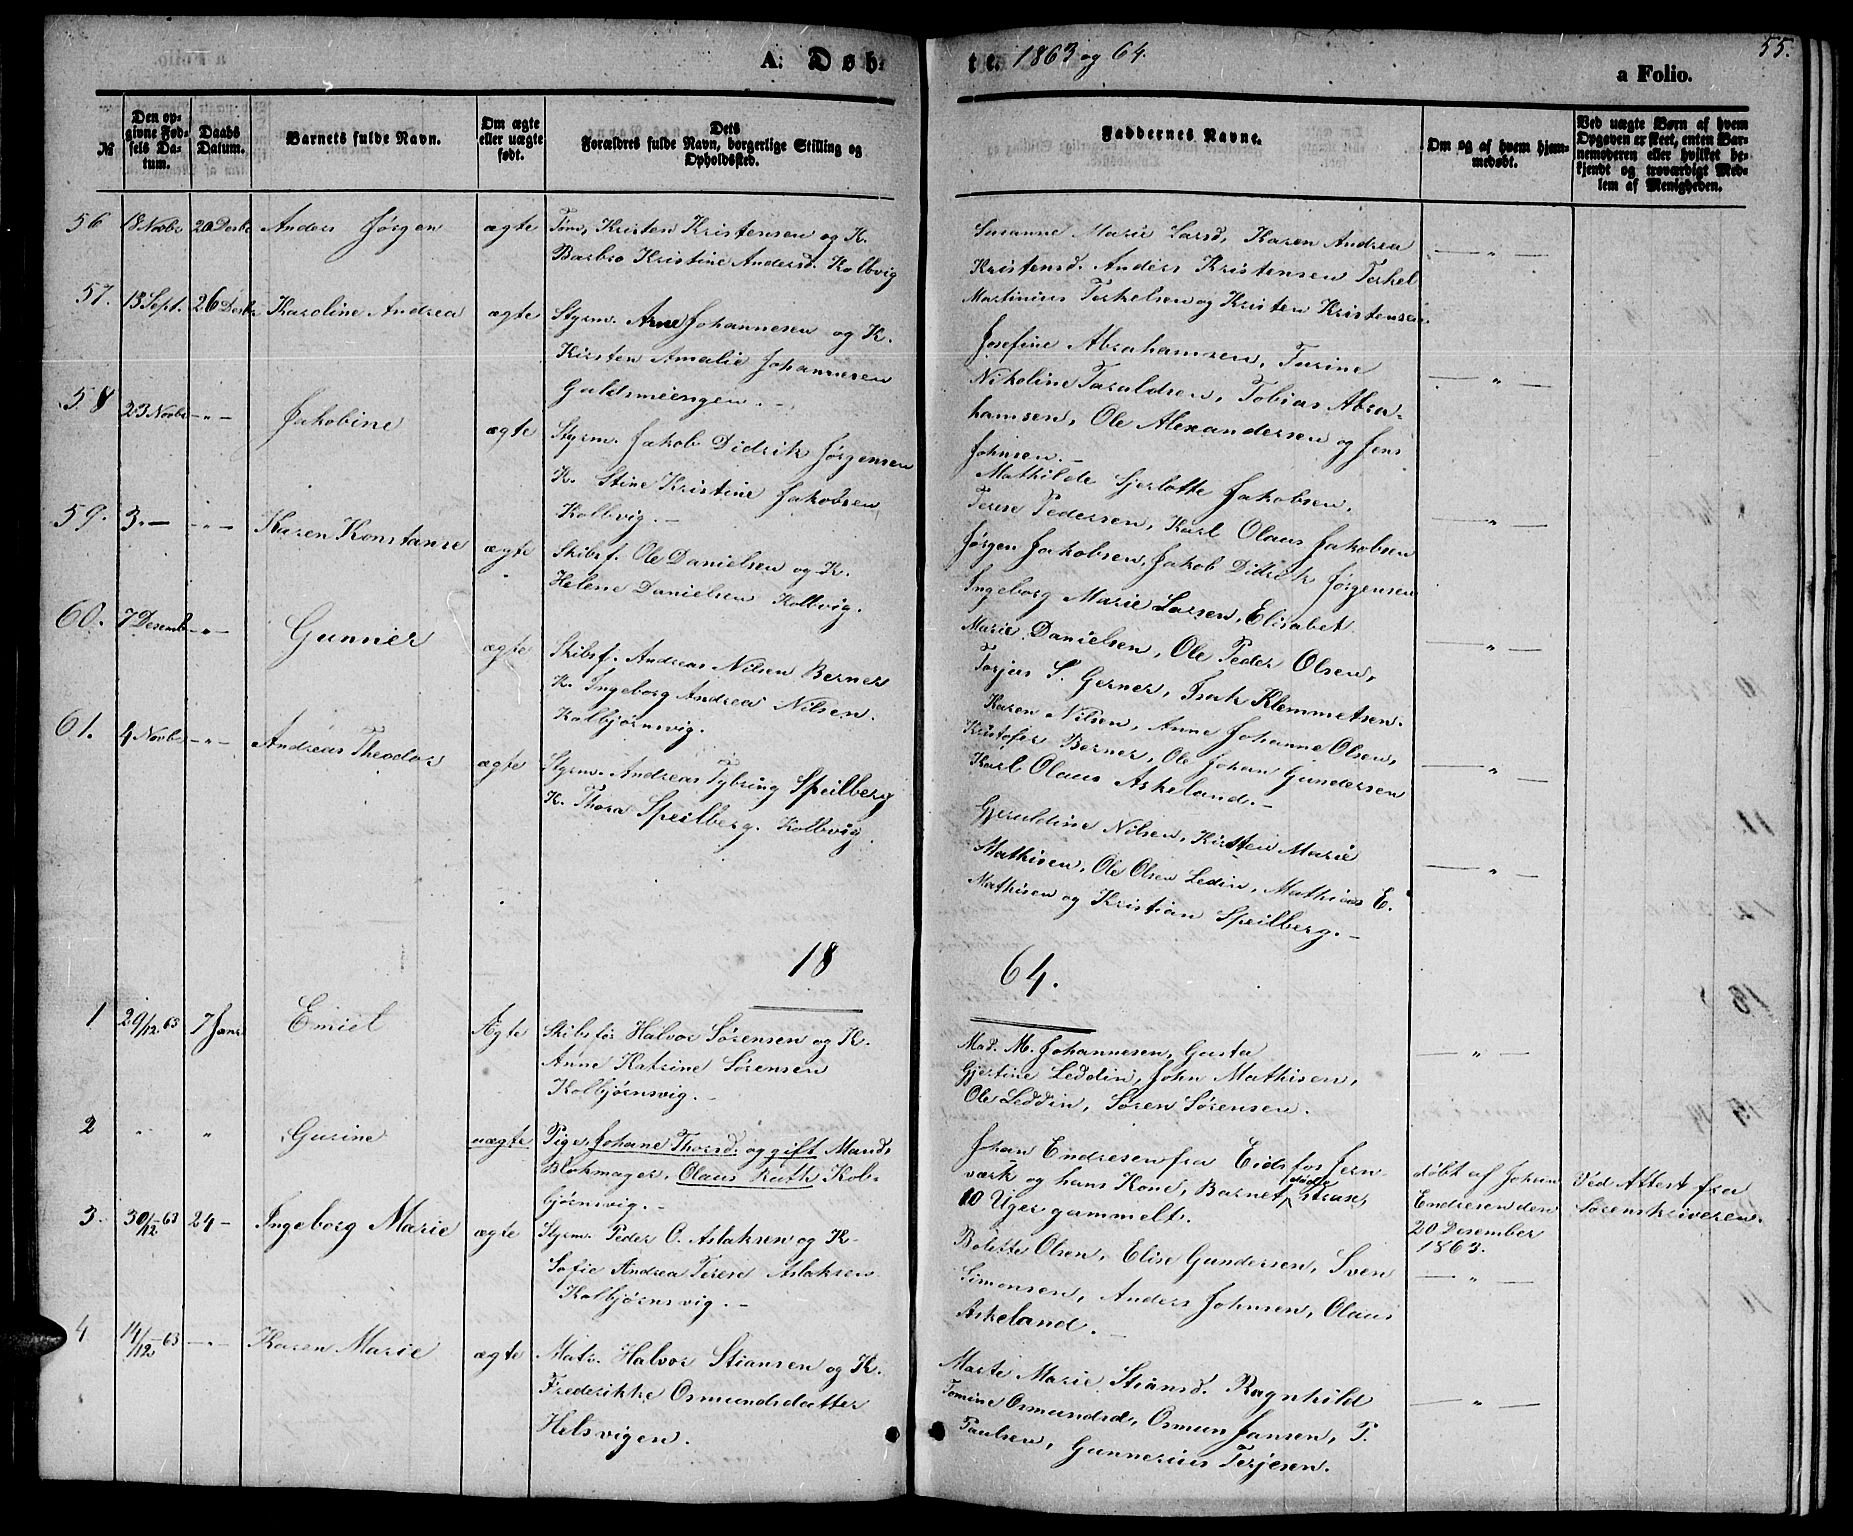 A: Døb-
te. 1863 og 64.
a Folio.
55.
№
Den op-
givne Fød-
sels Da-
tum.
Daabs
Datum.
Barnets fulde Navn.
Om ægte
eller uægte
født.
Dets
Forældres fulde Navn, borgerlige Stilling og
Opholdssted.
Faddernes Navne.
Om og af hvem hjem-
medøbt.
Ved uægte Børn af hvem
Opgaven er skeet, enten Bar-
nemoderen eller hvilket be-
kjendt og troværdigt Med-
lem af Menigheden.
56 18 Novbr 20 Desbr Anders Jørgen ægte Tøm, Kristen Kristensen og K.
Barbro Kristine Andersd. Kolbvig
Susanne Marie Larsd, Karen Andrea
Kristensd. Anders Kristensen Terkel
Martinius Terkelsen og Kristen Kristensen
— " —
57. 13 Sept. 26 Desbr Karoline Andrea ægte Styrm. Arne Johannesen og K.
Kirsten Amalie Johannesen
Galdsmeiengen. -
Josefine Abrahamsen, Turine
Nikoline Taraldsen, Tobias Abra-
hamsen, Ole Alexandersen og Jens
Johnsen. -
— " —
58 23 Novbr -"- Jakobine ægte Styrm. Jakob Didrik Jørgensen
K. Stine Kristine Jakobsen
Kolbvig. -
Mathilde Sjerlotte Jakobsen,
Terese Pedersen, Karl Olaus Jakobsen
Jørgen Jakobsen, Jakob Didrik Jørgensen
— " —
59. 3.- -"- Karen Konstanse ægte Skibsf. Ole Danielsen og K.
Helene Danielsen Kolbvig.
Ingeborg Marie Larsen, Elisabet
Marie Danielsen, Ole Peder Olsen,
Torjus S. Gerner, Isak Klemmetsen.
— " —
60. 7 Desemb -"- Gunner ægte Skibsf. Andreas Nilsen Berner
K. Ingeborg Andrea Nilsen.
Kolbjørnsvig.
Karen Nilsen, Anne Johanne Olsen,
Kristofer Berner, Ole Johan Gundersen
Karl Olaus Askeland. -
— " —
61. 4 Novb -"- Andreas Theodor ægte Styrm. Andreas Tybring Speilberg
K. Thora Speilberg. Kolbvig.
Gjeruldine Nilsen, Kirsten Marie
Mathisen, Ole Olsen Ledin, Mathias E.
Mathisen og Kristian Speilberg. -
— " —
18 64.
1 29/12 63 7 Janr Emiel Ægte Skibsfør Halvor Sørensen og K.
Anne Katrine Sørensen
Kolbjørnsvig. -
Mad. M. Johannesen, Gusta
Gjertine Leddin, John Mathisen,
Ole Leddin, Søren Sørensen.
— " —
2 " " Gurine uægte Pige, Johane Thorsd. og gift Mand,
Blokmager, Olaus Ruth Kol-
bjørnsvig. -
Johan Endresen fra Eidsfos Jern
værk og hans Kone, Barnet døde strax,
10 Uger gammelt.
døbt af Johan
Endresen den
20 Desember
1863.
Ved Attest fra
Sørenskriveren.
3. 30/12 63 24 - Ingeborg Marie ægte Styrm. Peder O. Aslaksen og K
Sofie Andrea Terese Aslaksen
Kolbjørnsvig. -
Bolette Olsen, Elise Gundersen, Sven
Simonsen, Anders Johnsen, Olaus
Askeland. -
— " —
4 14/12 63 -"- Karen Marie ægte Matr. Halvor Stiansen og K.
Frederikke Osmundsdatter
Helsvigen.
Marte Marie Stiansd. Ragnhild
Tomine Osmundsd, Osmun Jansen, P.
Paulsen, Gunnerius Terjesen.
— " —